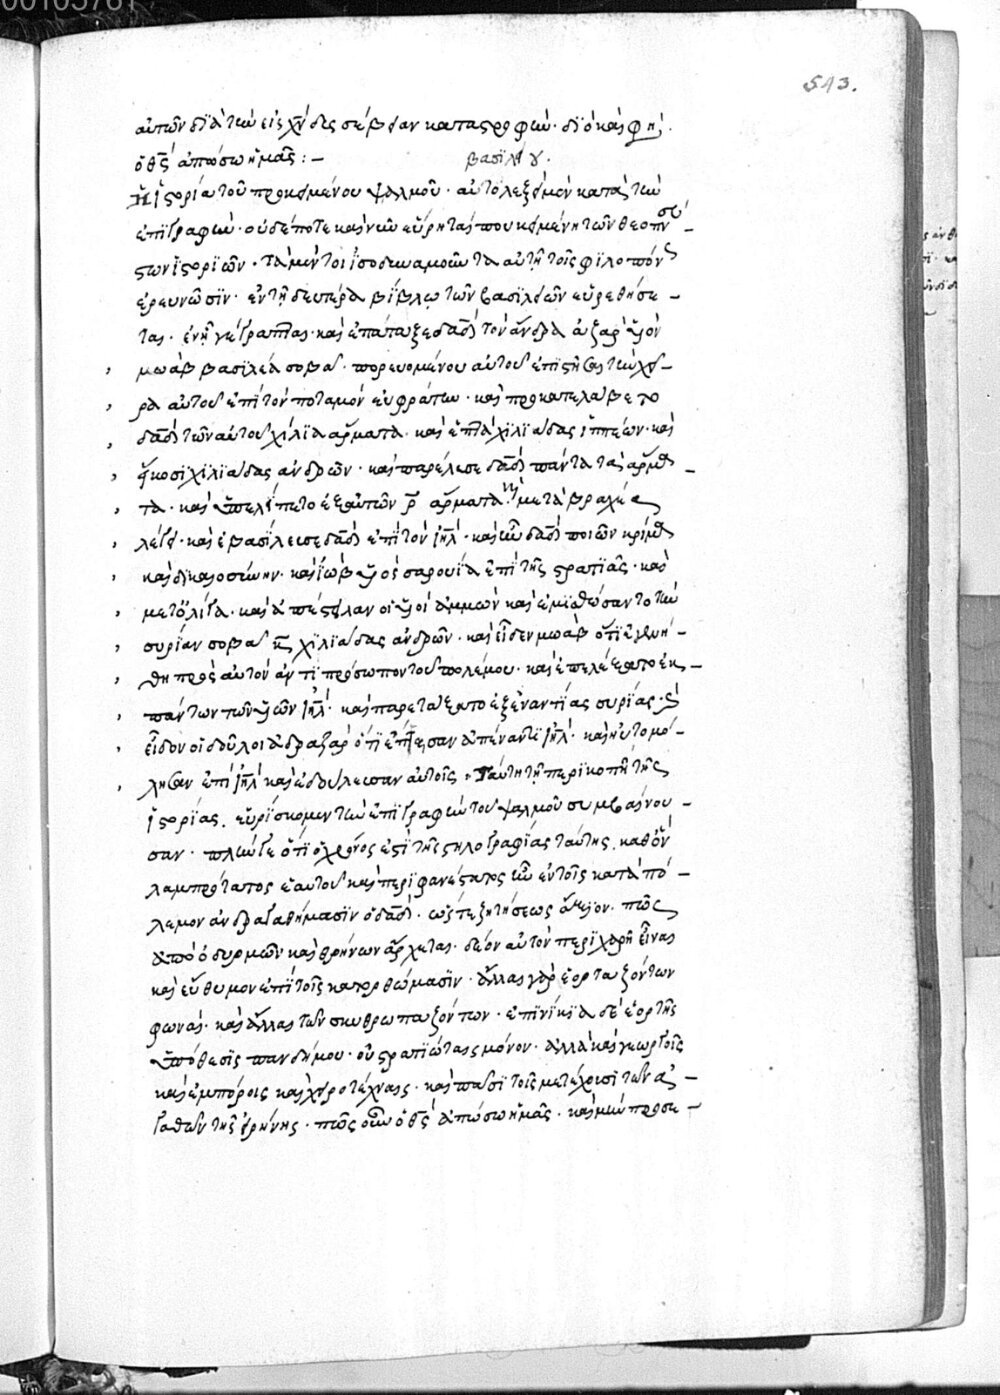 00105761
513.
αὐτῶν διὰ τὴν εἰς χν̅ δυσσέβειαν καταστροφήν· διὸ καί φησι·
ὁ θς̅ ἀπώσω ἡμᾶς :– βασιλείου.
Ἡ ἱστορία τοῦ προκειμένου ψαλμοῦ· αὐτολεξεὶ μὲν κατὰ τὴν
ἐπιγραφὴν· οὐδέποτε καὶ νῦν εὕρηταί που κειμένη τῶν θεοπνεύ–
στων ἱστοριῶν· τὰ μέντοι ἰσοδυναμοῦντα αὐτῇ τοῖς φιλοπόνως
ἐρευνῶσιν· ἐν τῇ δευτέρα βίβλω τῶν βασιλειῶν εὑρεθήσε–
ται· ἐν ᾗ γέγραπται· καὶ ἐπάταξε δαδ̅ τὸν ἀνδρααζὰρ υἱὸν
μωὰβ βασιλέα σοβά· πορευομένου αὐτοῦ ἐπιστῆσαι τὴν χεῖ–
ρα αὐτοῦ ἐπὶ τὸν ποταμὸν εὐφράτην· καὶ προκατελάβετο
δαδ̅ τῶν αὐτοῦ χίλια ἅρματα· καὶ ἑπτὰ χιλιάδας ἱππέων· καὶ
εἴκοσι χιλιάδας ἀνδρῶν· καὶ παρέλυσε δαδ̅ πάντα τὰ ἅρμα–
τα· καὶ ὑπελείπετο ἐξ αὐτῶν ρ̅ ἅρματα· μετὰ βραχέα
λέγει· καὶ ἐβασίλευσε δαδ̅ ἐπὶ τὸν ιηλ̅· καὶ ἦν δαδ̅ ποιῶν κρίμα
καὶ δικαιοσύνην· καὶ ἰωὰβ υἱὸς σαρουία ἐπὶ τῆς στρατιᾶς· καὶ
μετ' ὀλίγα· καὶ ἀπέστειλαν οἱ υἱοὶ ἀμμὼν καὶ ἐμισθώσαντο τὴν
συρίαν σοβὰ κ̅ χιλιάδας ἀνδρῶν· καὶ εἶδεν μωὰβ ὅτι ἐγενή–
θη πρὸς αὐτὸν ἀντιπρόσωπον τοῦ πολέμου· καὶ ἐπελέξατο ἐκ–
πάντων τῶν υἱῶν ιηλ̅· καὶ παρετάξατο ἐξεναντίας συρίας· καὶ
εἶδον οἱ δοῦλοι ἀδρααζὰρ ὅτι ἔπταισαν ἀπέναντι ιηλ̅· καὶ ηὐτομό–
λησαν ἐπὶ ιηλ̅ καὶ ἐδούλευσαν αὐτοῖς· Ταύτη τῇ περικοπῇ τῆς
ἱστορίας· εὑρίσκομεν τὴν ἐπιγραφὴν τοῦ ψαλμοῦ συμβαίνου–
σαν· πλήν γε ὅτι ὁ χρόνος ἐστὶ τῆς στηλογραφίας ταύτης· καθ' ὃν
λαμπρότατος ἑαυτοῦ καὶ περιφανέστατος ἦν ἐν τοῖς κατὰ πό–
λεμον ἀνδραγαθήμασιν ὁ δαδ̅· ὥστε ζητήσεως ἄξιον· πῶς
ἀπὸ ὀδυρμῶν καὶ θρήνων ἄρχεται· δέον αὐτὸν περιχαρῆ εἶναι
καὶ εὔθυμον ἐπὶ τοῖς κατορθώμασιν· ἄλλαι γὰρ ἑορταζόντων
φωναί· καὶ ἄλλαι τῶν σκυθρωπαζόντων· ἐπινίκια δὲ ἑορτῆς
ὑπόθεσις πανδήμου· οὐ στρατιώταις μόνον· ἀλλὰ καὶ γεωργοῖς
καὶ ἐμπόροις καὶ χειροτέχναις· καὶ πᾶσι τοῖς μετέχουσι τῶν ἀ–
γαθῶν τῆς εἰρήνης· πῶς οὖν ὁ θς̅ ἀπώσω ἡμᾶς· καὶ μὴν προσε–